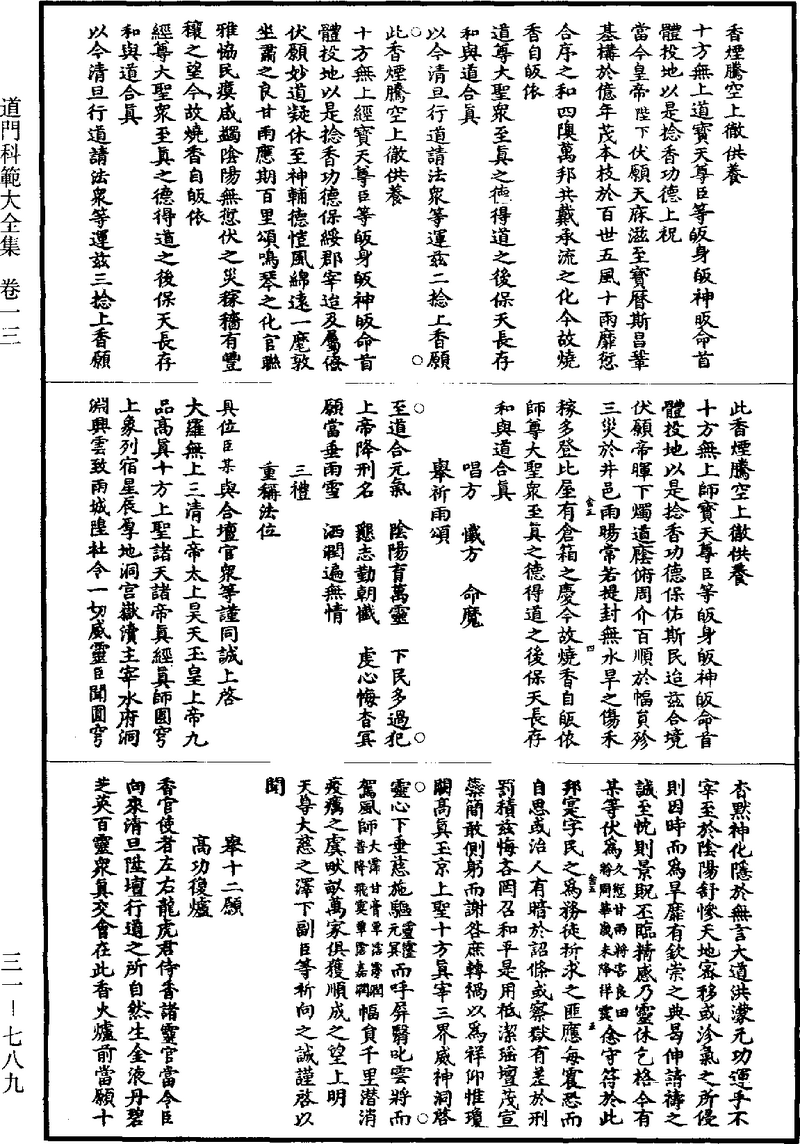 道門科範大全集 卷一三
三一—七八九
香煙騰空上徹供養
十方無上道寶天尊臣等皈身皈神皈命首
體投地以是捻香功德上祝
當今皇帝陛下伏願天庥滋至寶曆斯昌鞏
基構於億年茂本枝於百世五風十雨靡愆
合序之和四隩萬邦共戴承流之化今故燒
香自皈依
道尊大聖衆至真之德得道之後保天長存
和與道合真
以今清旦行道請法衆等運茲二捻上香願
此香煙騰空上徹供養
十方無上經寶天尊臣等皈身皈神皈命首
體投地以是捻香功德保綏郡宰迨及屬僚
伏願妙道凝休至神輔德愷風綿遠一麾敦
坐肅之良甘雨應期百里頌鳴琴之化官聯
雅協民瘼咸蠲陰陽無愆伏之災稼穡有豐
穰之望今故燒香自皈依
經尊大聖衆至真之德得道之後保天長存
和與道合真
以今清旦行道請法衆等運茲三捻上香願
此香煙騰空上徹供養
十方無上師寶天尊臣等皈身皈神皈命首
體投地以是捻香功德保佑斯民迨茲合境
伏願帝暉下燭道廕俯周介百順於幅員殄
三災於井邑雨暘常若提封無水旱之傷禾
稼多登比屋有倉箱之慶今故燒香自皈依
師尊大聖衆至真之德得道之後保天長存
和與道合真
唱方 懺方 命魔
舉祈雨頌
至道合元氣 陰陽育萬靈 下民多過犯
上帝降刑名 懇志勤朝懺 虔心悔杳冥
願當垂雨雪 洒潤遍無情
三禮
重稱法位
具位臣某與合壇官衆等謹同誠上啓
大羅無上三清上帝太上昊天玉皇上帝九
品高真十方上聖諸天諸帝真經真師圓穹
上象列宿星辰厚地洞宮嶽瀆主宰水府洞
淵興雲致雨城隍社令一切威靈臣聞圓穹
杳默神化隱於無言大道洪濛元功運乎不
宰至於陰陽舒慘天地寥移或沴氣之所侵
則因時而爲旱靡有欽崇之典曷伸請禱之
誠至忱則景貺丕臨精感乃靈休乞格今有
某等伏爲久愆甘雨將害良田將周華歲未降祥霙念守符於此
邦寔字民之爲務徒祈求之匪應每震恐而
自思或治人有暗於詔條或察獄有差於刑
罰積茲悔吝罔召和平是用秪潔瑶壇茂宣
蘂簡敢側躬而謝咎庶轉禍以爲祥仰惟瓊
闕高真玉京上聖十方真宰三界威神洞啓
靈心下垂慈施驅靈霳元冥而呼屏翳叱雲將而
駕風師大霈甘膏單霑霶潤普降飛霙覃霑嘉潤幅員千里潜消
疫癘之虞畎畝萬家俱獲順成之望上明
天尊大慈之澤下副臣等祈向之誠謹啓以
聞
舉十二願
高功復爐
香官使者左右龍虎君侍香諸靈官當令臣
向來清旦陞壇行道之所自然生金液丹碧
芝英百靈衆真交會在此香火爐前當願十